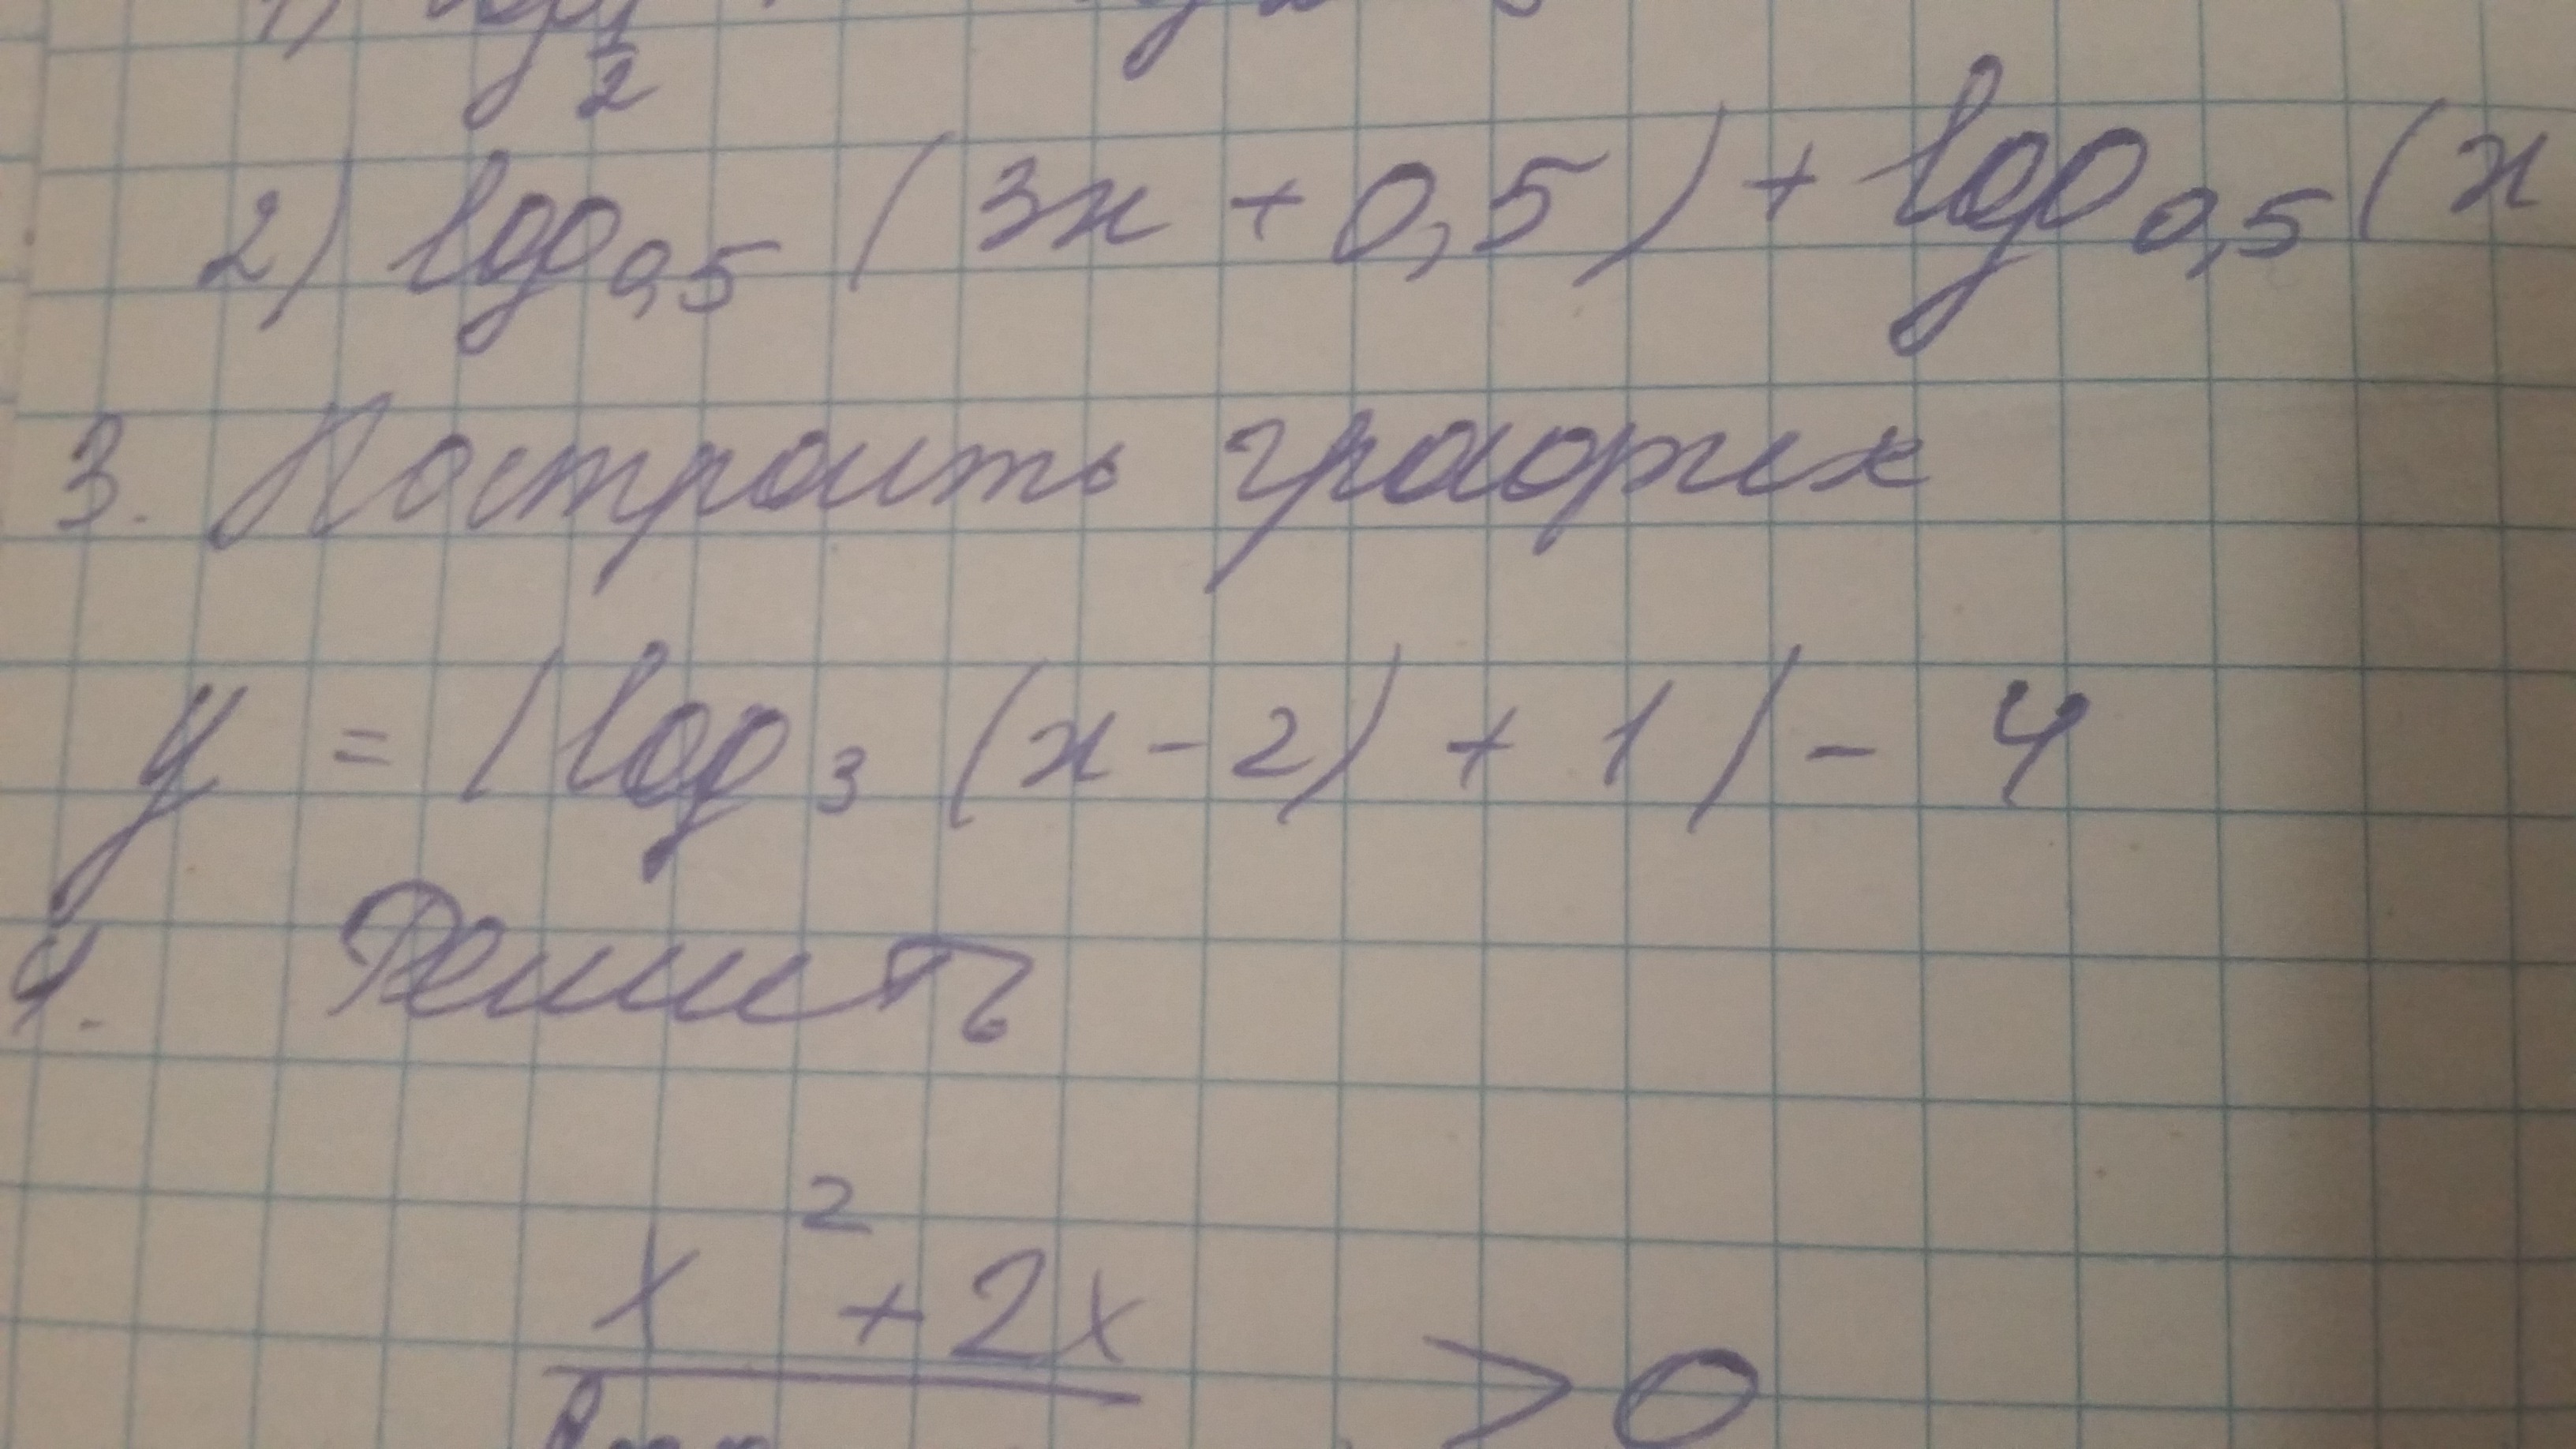 2) log₀,₅ (3x + 0,5) + log₀,₅ (x
3. Построить график
y = |log₃ (x - 2) + 1| - 4
4. Решить
x² + 2x
> 0